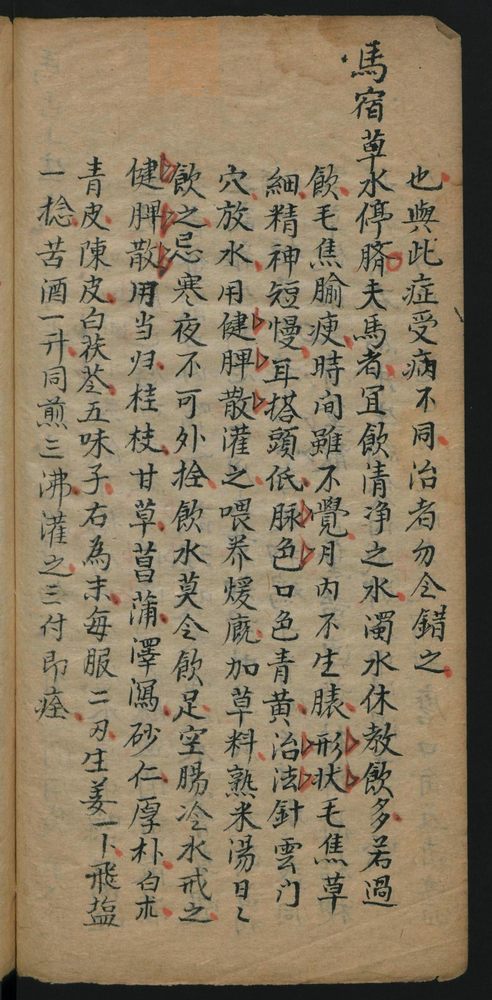 也與此症受病不同治者勿令錯之
馬宿草水停臍夫馬者宜飲清净之水濁水休教飲多若過
飲毛焦腧㾿時間雖不覺月内不生膘形状毛焦草
細精神短慢耳搭頭低脉色口色青黄治法針雲门
穴放水用健脾散灌之喂养煖廐加草料熟米湯日〻
飲之忌寒夜不可外拴飲水莫令飲足空腸冷水戒之
健脾散用当归桂枝甘草菖蒲澤瀉砂仁厚朴白朮
青皮陳皮白茯苓五味子右為末每服二刃生姜一卜飛盐
一捻苦酒一升同煎三沸灌之三付即痊